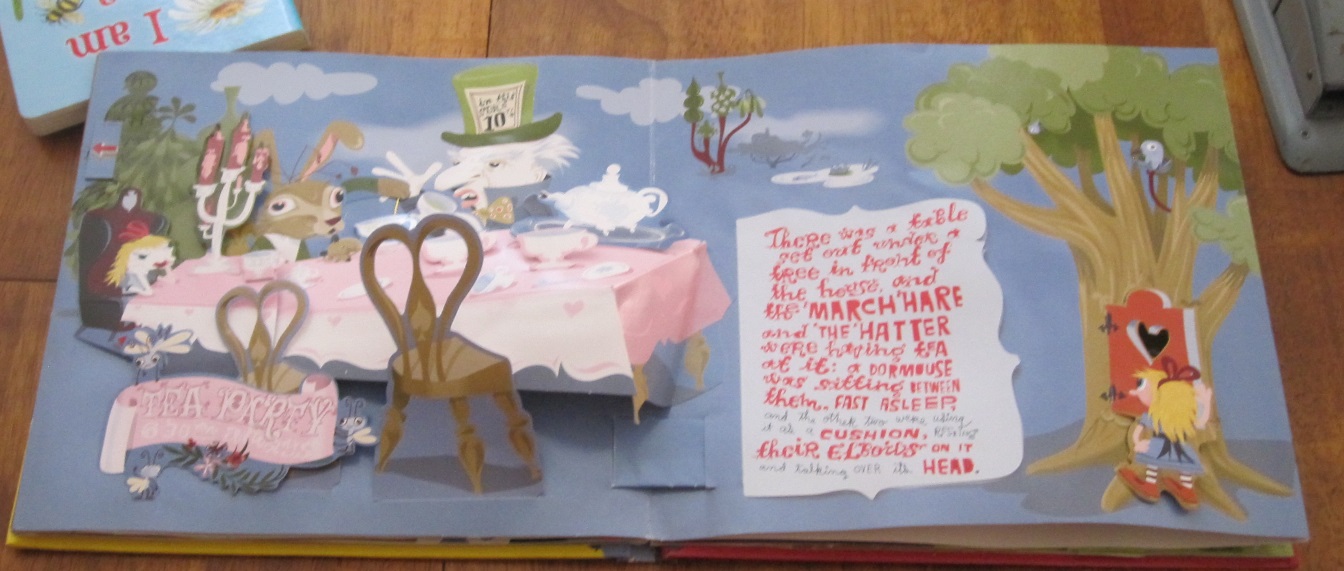 I am
in this
style
10
TEA PARTY
There was a table
set out under a
tree in front of
the house, and
the MARCH HARE
and THE HATTER
were having tEA
at it: a DORMOUSE
was sitting BETWEEN
them, FAST ASLEEP,
and the other two were using
it as a CUSHION, RESTING
their ELBOWS ON IT
and talking OVER its HEAD.